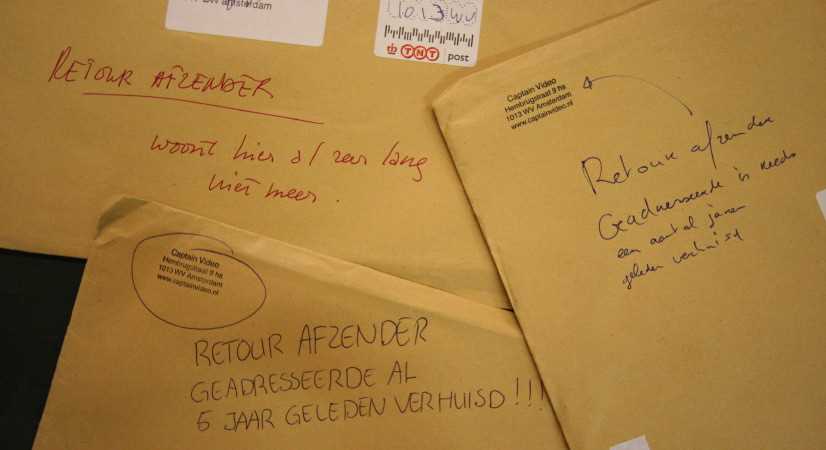 1013 WV
TNT post
RETOUR AFZENDER
woont hier al zeer lang
niet meer.
Captain Video
Hembrugstraat 9 hs
1013 WV Amsterdam
www.captainvideo.nl
Retour afzender
Geadresseerde is reeds
een aantal jaren
geleden verhuisd
Captain Video
Hembrugstraat 9 hs
1013 WV Amsterdam
www.captainvideo.nl
RETOUR AFZENDER
GEADRESSEERDE AL
5 JAAR GELEDEN VERHUISD!!!